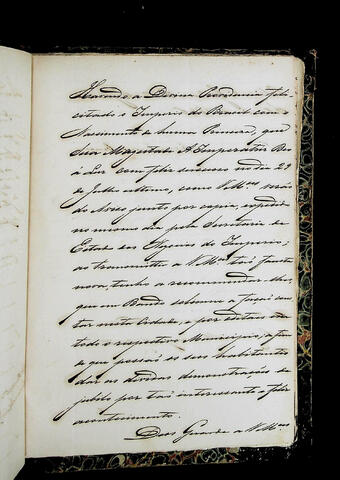 Havendo a Divina Providencia feli
citado o Imperio do Brazil com o
Nascimento de huma Princeza, que
dêu Magestade A Imperatriz Deu
á Luz com feliz successo no dia 29
de Julho ultimo, como V Mces verão
do Aviso junto por copia, expedido
no mesmo dia pela Secretaria d'
Estado dos Negocios do Imperio;
ao transmittir a V Mces tão fausta
nova, tenho a recommendar-lhes,
que em Bando solemne a fação cons
tar nesta Cidade, e por editaes em
todo o respectivo Municipio, a fim
de que possão os seus habitantes
dar as devidas demonstrações de
jubilo por tão interessante e feliz
acontecimento.
Deos Guarde a V Mces